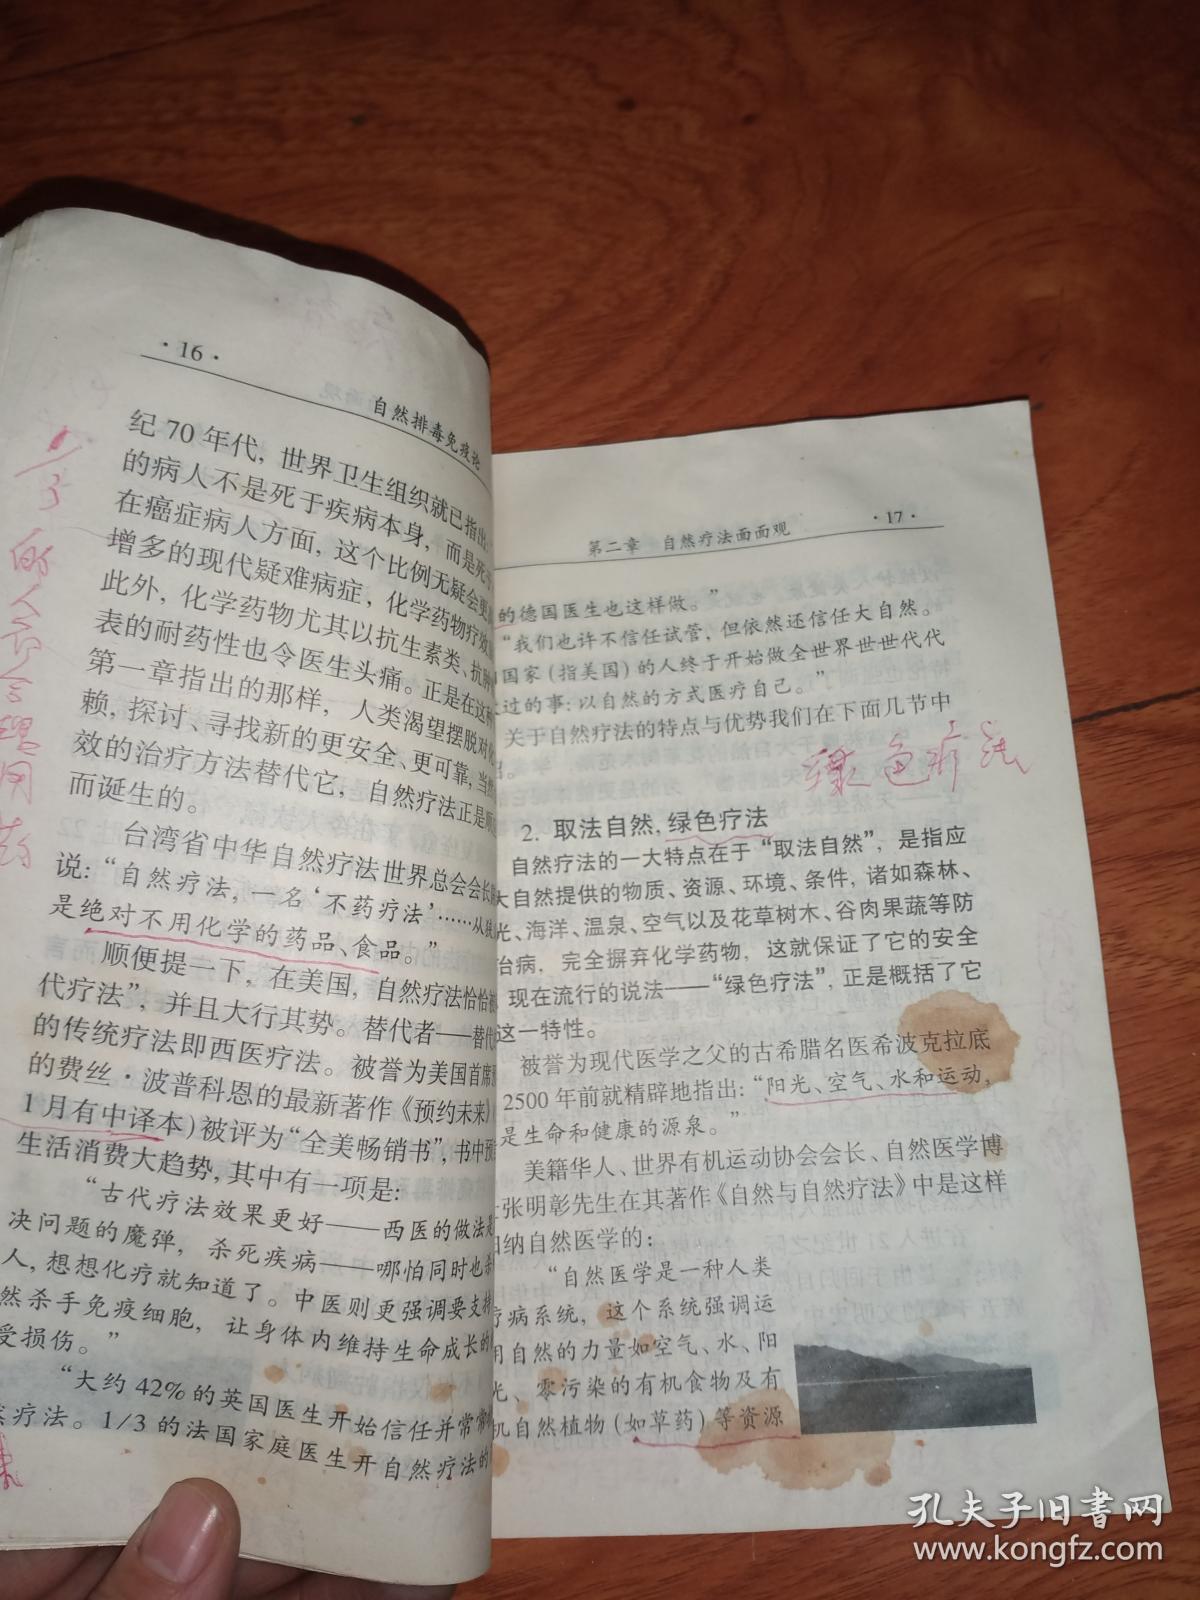 ·16·
自然排毒免疫论
纪70年代，世界卫生组织就已指出：
的病人不是死于疾病本身，而是死于
在癌症病人方面，这个比例无疑会更
增多的现代疑难病症，化学药物疗效
此外，化学药物尤其以抗生素类、抗肿
表的耐药性也令医生头痛。正是在这种
第一章指出的那样，人类渴望摆脱对化
赖，探讨、寻找新的更安全、更可靠，当然
效的治疗方法替代它，自然疗法正是顺
而诞生的。
台湾省中华自然疗法世界总会会长
说：“自然疗法，一名‘不药疗法’……从狭
是绝对不用化学的药品、食品。”
顺便提一下，在美国，自然疗法恰恰被
代疗法”，并且大行其势。替代者——替代
的传统疗法即西医疗法。被誉为美国首席预
的费丝·波普科恩的最新著作《预约未来》
1月有中译本)被评为“全美畅销书”，书中预
生活消费大趋势，其中有一项是：
“古代疗法效果更好——西医的做法是
决问题的魔弹，杀死疾病——哪怕同时也杀
人，想想化疗就知道了。”中医则更强调要支持
然杀手免疫细胞，让身体内维持生命成长的
受损伤。”
“大约42%的英国医生开始信任并常常
疗法。1/3的法国家庭医生开自然疗法的
1/3的人不合理用药
第二章 自然疗法面面观
·17·
的德国医生也这样做。”
“我们也许不信任试管，但依然还信任大自然。
国家(指美国)的人终于开始做全世界世世代代
过的事：以自然的方式医疗自己。”
关于自然疗法的特点与优势我们在下面几节中
绿色疗法
2. 取法自然，绿色疗法
自然疗法的一大特点在于“取法自然”，是指应
大自然提供的物质、资源、环境、条件，诸如森林、
光、海洋、温泉、空气以及花草树木、谷肉果蔬等防
治病，完全摒弃化学药物，这就保证了它的安全
现在流行的说法——“绿色疗法”，正是概括了它
这一特性。
被誉为现代医学之父的古希腊名医希波克拉底
2500年前就精辟地指出：“阳光、空气、水和运动，
是生命和健康的源泉。”
美籍华人、世界有机运动协会会长、自然医学博
张明彰先生在其著作《自然与自然疗法》中是这样
纳自然医学的：
“自然医学是一种人类
疗病系统，这个系统强调运
用自然的力量如空气、水、阳
光、零污染的有机食物及有
机自然植物(如草药)等资源
孔夫子旧书网
www.kongfz.com